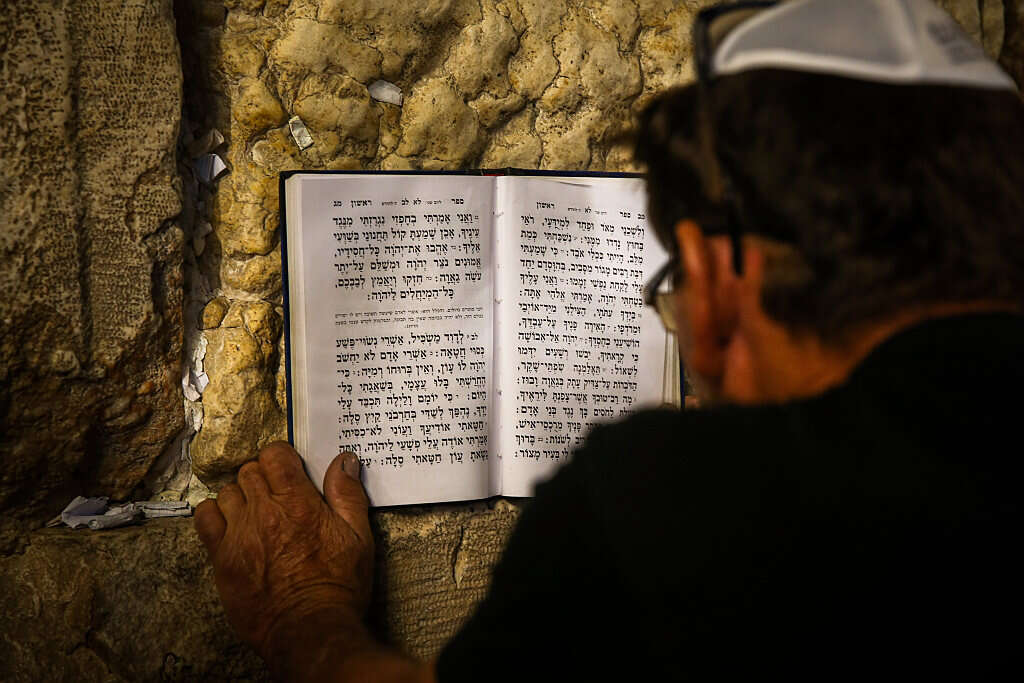 מב ספר לא ראשון
וְלִשֲׁכֵנַי מְאֹד וּפַחַד לִמְיֻדָּעָי, רֹאַי
בַּחוּץ נָדְדוּ מִמֶּנִּי: נִשְׁכַּחְתִּי כְּמֵת
מִלֵּב, הָיִיתִי כִּכְלִי אֹבֵד: כִּי שָׁמַעְתִּי
דִּבַּת רַבִּים מָגוֹר מִסָּבִיב, בְּהִוָּסְדָם יַחַד
עָלַי לָקַחַת נַפְשִׁי זָמָמוּ: וַאֲנִי עָלֶיךָ
בָטַחְתִּי יְהֹוָה, אָמַרְתִּי אֱלֹהַי אָתָּה:
בְּיָדְךָ עִתֹּתָי, הַצִּילֵנִי מִיַּד־אוֹיְבַי
וּמֵרֹדְפָי: הָאִירָה פָנֶיךָ עַל־עַבְדֶּךָ,
הוֹשִׁיעֵנִי בְחַסְדֶּךָ: יְהֹוָה אַל־אֵבוֹשָׁה
כִּי קְרָאתִיךָ, יֵבֹשׁוּ רְשָׁעִים יִדְּמוּ
לִשְׁאוֹל: תֵּאָלַמְנָה שִׂפְתֵי שָׁקֶר,
הַדֹּבְרוֹת עַל־צַדִּיק עָתָק בְּגַאֲוָה וָבוּז:
מָה רַב־טוּבְךָ אֲשֶׁר־צָפַנְתָּ לִּירֵאֶיךָ,
לַחֹסִים בָּךְ נֶגֶד בְּנֵי אָדָם:
פָּנֶיךָ מֵרֻכְסֵי־אִישׁ,
לְשֹׁנוֹת: בָּרוּךְ
לִי בְּעִיר מָצוֹר:
ספר לא לב ראשון מג
וַאֲנִי אָמַרְתִּי בְחָפְזִי נִגְרַזְתִּי מִנֶּגֶד
עֵינֶיךָ, אָכֵן שָׁמַעְתָּ קוֹל תַּחֲנוּנַי בְּשַׁוְּעִי
אֵלֶיךָ: אֶהֱבוּ אֶת־יְהֹוָה כָּל־חֲסִידָיו,
אֱמוּנִים נֹצֵר יְהֹוָה וּמְשַׁלֵּם עַל־יֶתֶר
עֹשֵׂה גַאֲוָה: חִזְקוּ וְיַאֲמֵץ לְבַבְכֶם,
כָּל־הַמְיַחֲלִים לַיהֹוָה:
לב לְדָוִד מַשְׂכִּיל, אַשְׁרֵי נְשׂוּי־פֶּשַׁע
כְּסוּי חֲטָאָה: אַשְׁרֵי אָדָם לֹא יַחְשֹׁב
יְהֹוָה לוֹ עָוֹן, וְאֵין בְּרוּחוֹ רְמִיָּה: כִּי־
הֶחֱרַשְׁתִּי בָּלוּ עֲצָמָי, בְּשַׁאֲגָתִי כָּל־
הַיּוֹם: כִּי יוֹמָם וָלַיְלָה תִּכְבַּד עָלַי
יָדֶךָ, נֶהְפַּךְ לְשַׁדִּי בְּחַרְבֹנֵי קַיִץ סֶלָה:
חַטָּאתִי אוֹדִיעֲךָ וַעֲוֹנִי לֹא־כִסִּיתִי,
אָמַרְתִּי אוֹדֶה עֲלֵי פְשָׁעַי לַיהֹוָה, וְאַתָּה
נָשָׂאתָ עֲוֹן חַטָּאתִי סֶלָה: